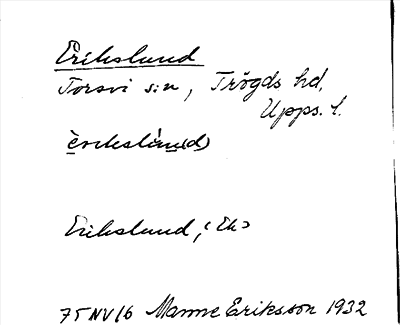 Erikslund
Torsvi s:n, Trögds hd,
Upps. l.
Erikslund, (Ek)
75 NV/6 Manne Eriksson 1932